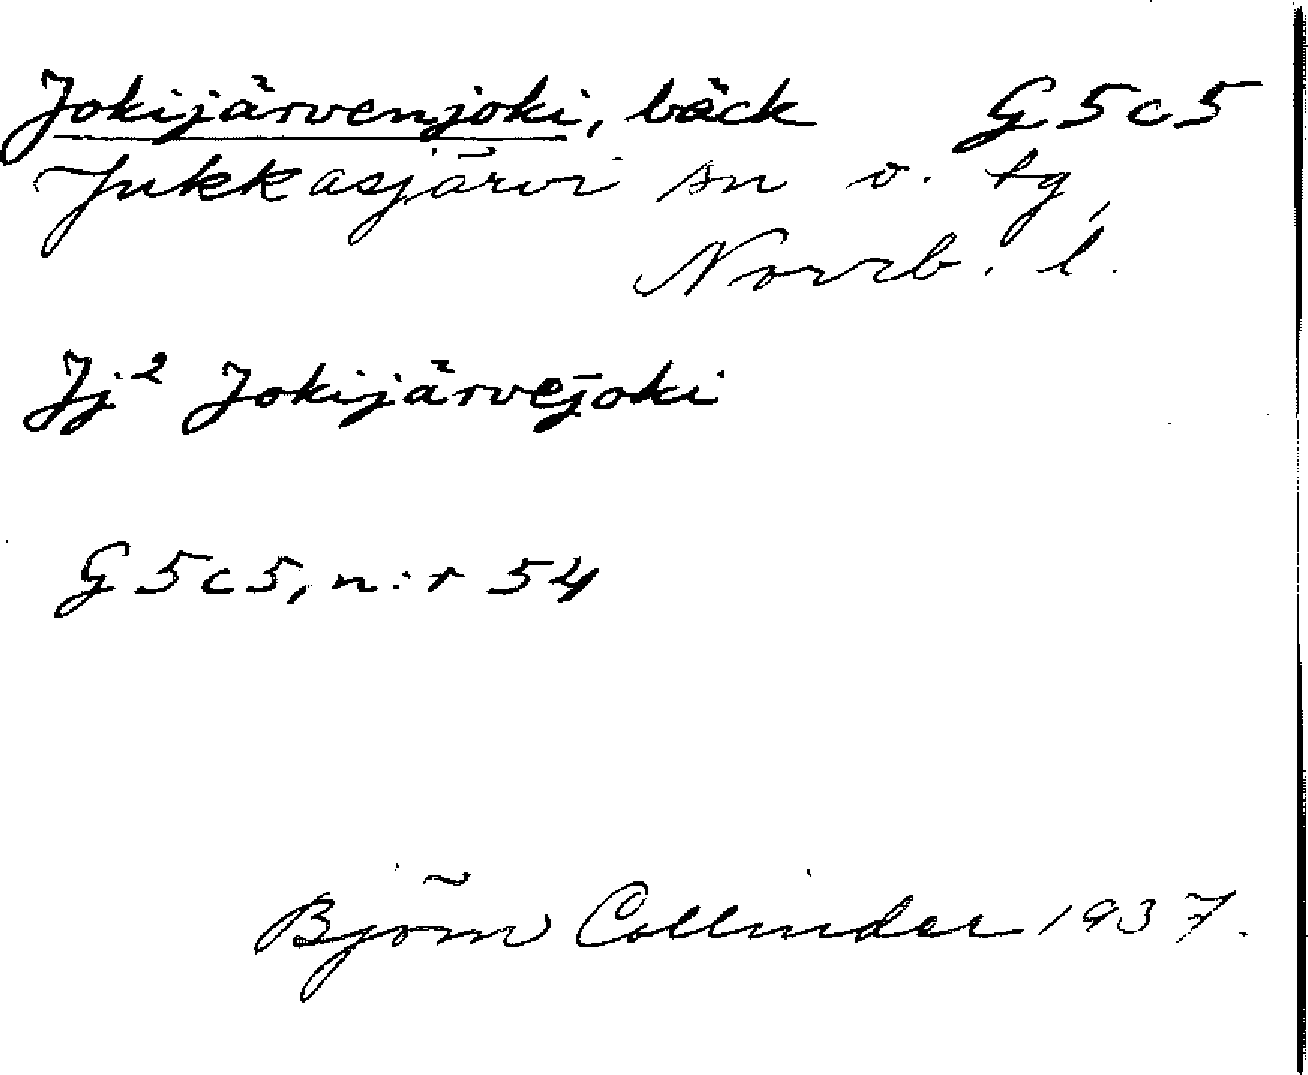 Jokijärvenjoki, bäck G5c5
Jukkasjärvi sn o. tg,
Norrb. l.
Jj² Jokijärvej̄oki
G5c5, n:r 54
Björn Collinder 1937.